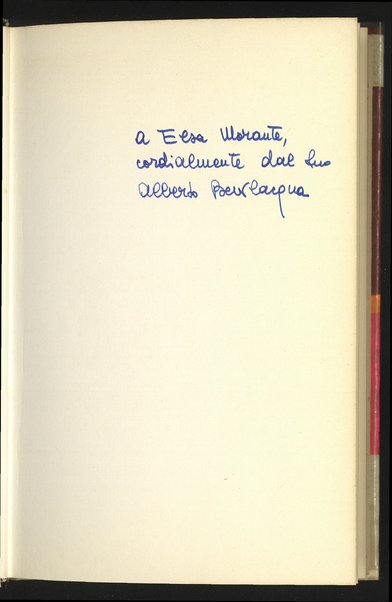 a Elsa Morante,
cordialmente dal suo
Alberto Bevilacqua